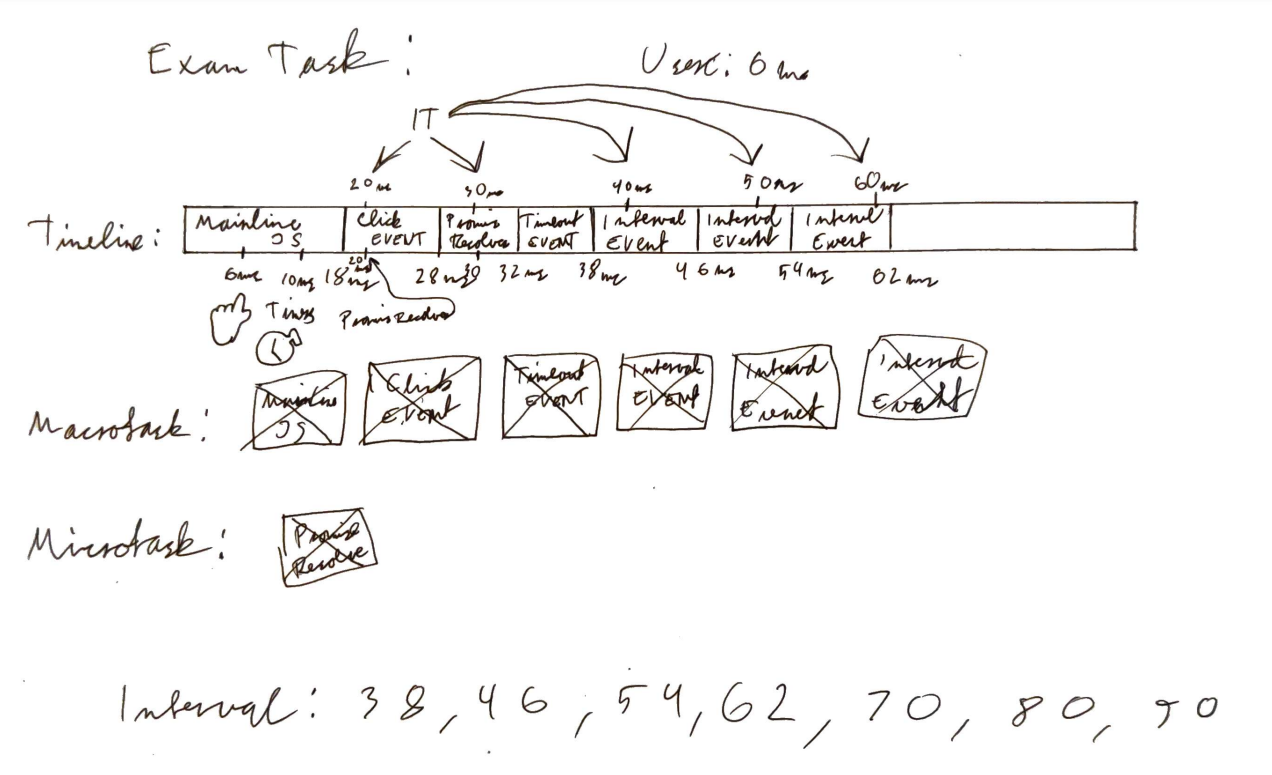 Exam Task:
User: 6ms
IT
20ms 30ms 40ms 50ms 60ms
Timeline: Mainline JS Click EVENT Promis Resolve Timeout EVENT Interval Event Interval Event Interval Event
6ms 10ms 18ms 20 28ms 30 32ms 38ms 46ms 54ms 62ms
Timer Promis Resolved
Macrotask: Mainline JS Click EVENT Timeout EVENT Interval EVENT Interval Event Interval Event
Microtask: Promise Resolve
Interval: 38, 46, 54, 62, 70, 80, 90